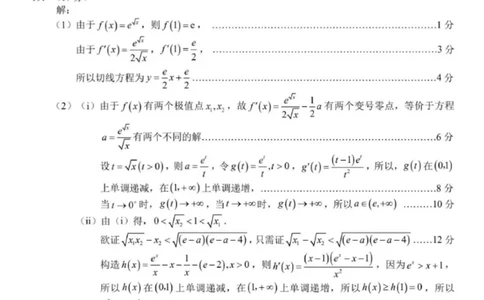 解:
(1) 由于 f(x)=e^x, 则 f(1)=e, 1分
由于 f'(x)=e^x/2 x, f'(1)=e/2, 3分
所以切线方程为 y=e/2 x+e/2 4分
(2) (i) 由于 f(x) 有两个极值点 x₁,x₂, 故 f'(x)=e^x/2 x-1/2 a 有两个变号零点, 等价于方程
a=e^x/x 有两个不同的解 6分
设 t= x(t>0), 则 a=e^t/t, 令 g(t)=e^t/t, t>0, g'(t)=(t-1)e^t/t², 所以, g(t) 在(0,1)
上单调递减, 在(1,+∞)上单调递增, 8分
当 t→0⁺ 时, g(t)→+∞, 当 t→+∞ 时, g(t)→+∞, 所以 a∈(e,+∞) 10分
(ii) 由 (i) 得, 0< x₂<1< x₁.
欲证 x₁x₂-x₂<√(e-a)(e-a-4), 只需证 x₁-x₂<√(e-a)(e-a-4) 12分
构造 h(x)=e^x/x-x-1/x-(e-2), x>0, 则 h'(x)=(x-1)(e^x-x-1)/x², 因为 e^x>x+1,
所以 h(x) 在(0,1)上单调递减, 在(1,+∞)上单调递增, 所以 h(x)≥h(1)=0, 所以